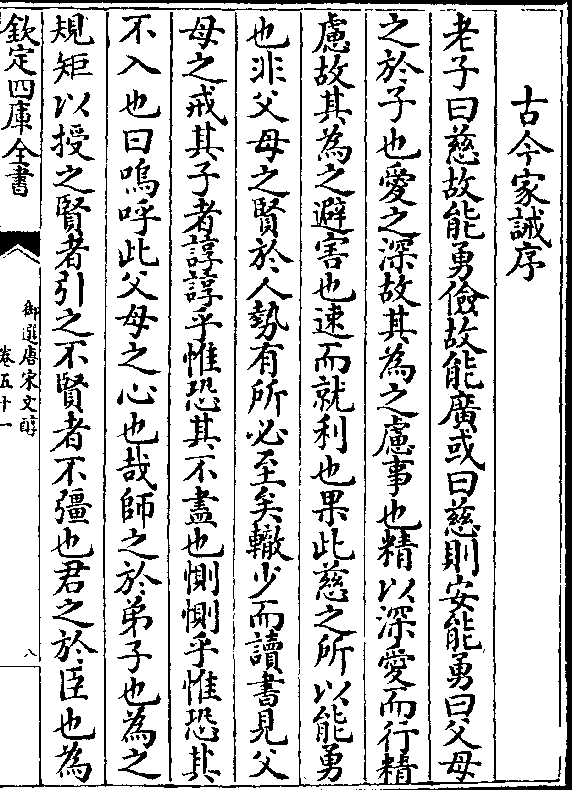 古今家誡序
老子曰慈故能勇儉故能廣或曰慈則安能勇曰父母
之於子也愛之深故其為之慮事也精以深愛而行精
慮故其為之避害也速而就利也果此慈之所以能勇
也非父母之賢於人勢有所必至矣轍少而讀書見父
母之戒其子者諄諄乎惟恐其不盡也惻惻乎惟恐其
不入也曰嗚呼此父母之心也哉師之於弟子也為之
規矩以授之賢者引之不賢者不彊也君之於臣也為
欽定四庫全書
御選唐宋文醇
卷五十一
八